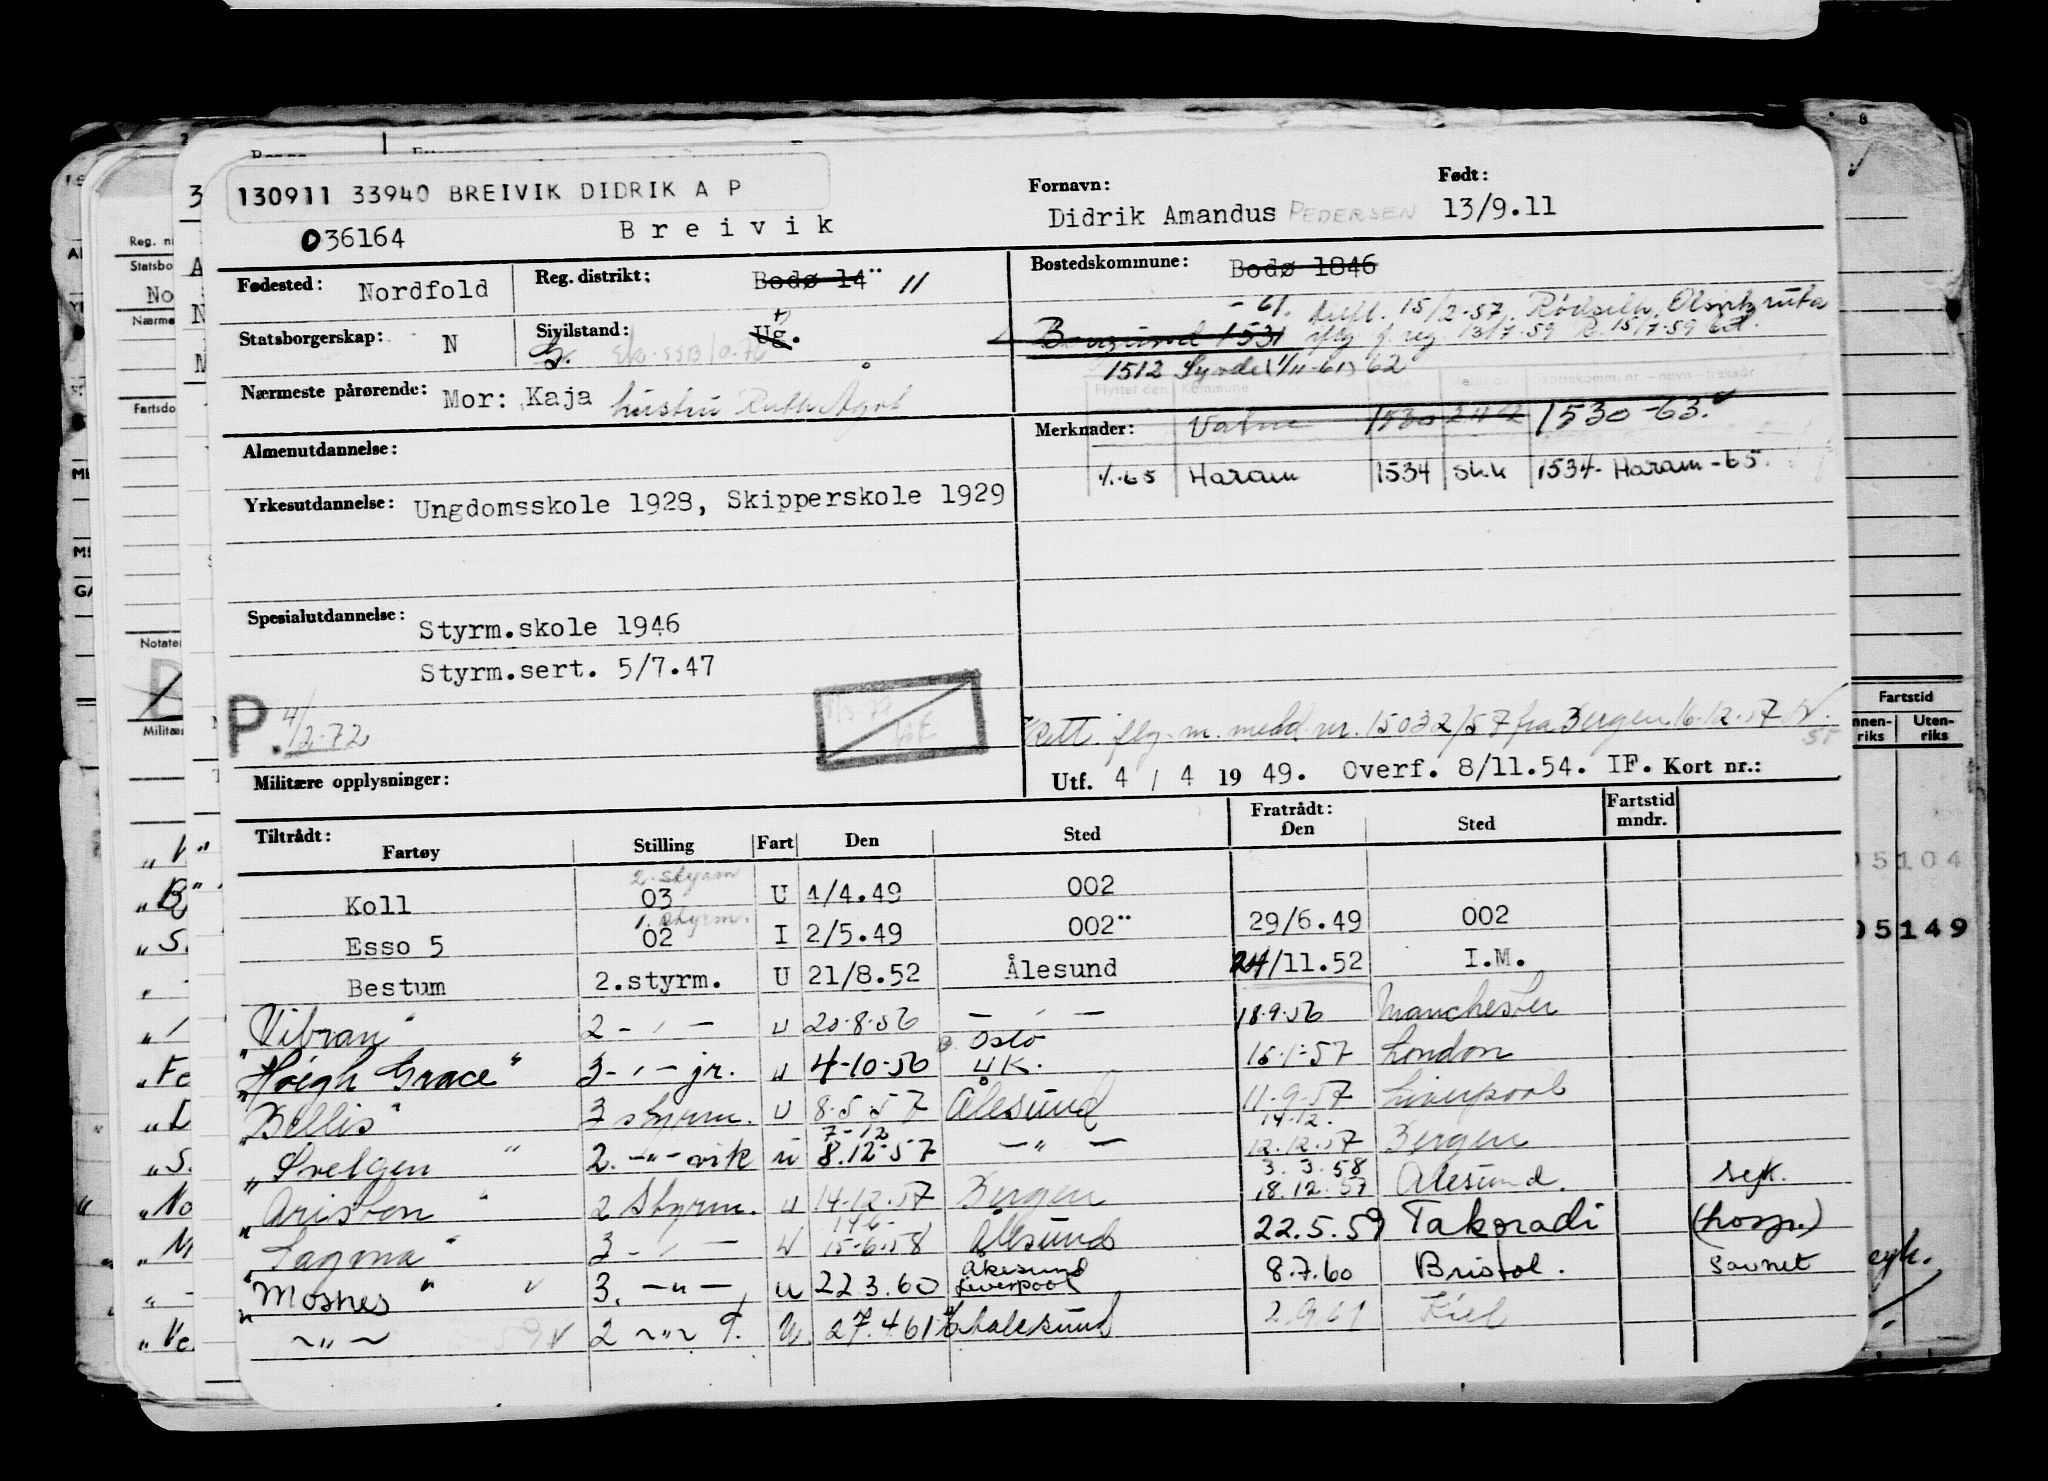 130911 33940 BREIVIK DIDRIK A P
036164 Breivik
Fornavn: Didrik Amandus PEDERSEN
Født: 13/9.11
Fødested: Nordfold
Reg. distrikt: Bodø 14 11
Bostedskommune: Bodø 1846
Statsborgerskap: N
Sivilstand: Ug. G.
1531
1512 Syvde (1/11-61) 62
Nærmeste pårørende: Mor: Kaja hustru Ruth Agot
Flyttet den Kommune
Merknader: Vatne 1530 1530-63.
Almenutdannelse:
1/1-65 Haram 1534 Sk.k 1534- Haram -65.
Yrkesutdannelse: Ungdomsskole 1928, Skipperskole 1929
Spesialutdannelse: Styrm.skole 1946
Styrm.sert. 5/7.47
P. 4/2-72
Rett. iflg. m. meld nr. 15032/57 fra Bergen 16-12-57
Militære opplysninger:
Utf. 4 / 4 19 49. Overf. 8/11.54. IF. Kort nr.:
Tiltrådt: Fartøy Stilling Fart Den Sted Fratrådt: Den Sted Fartstid mndr.
2. styrm
Koll 03 U 1/4.49 002
1. styrm.
Esso 5 02 I 2/5.49 002 29/6.49 002
Bestum 2.styrm. U 21/8.52 Ålesund 24/11.52 I.M.
"Vibran" 2 - " - u 20-8-56 - " - 18.9.56 Manchester
"Høegh Grace" 3 - " - jr. u 4-10-56 Oslo UK. 16-1-57 London
"Bellis" 3 styrm. u 8.5.57 Ålesund 11-9.57 Liverpool
7-12 14-12.
"Svelgen" 2. -"- vik u 8.12-57 - " - 12.12.57 Bergen
3.3.58
"Aristen" 2 Styrm. u 14-12.57 Bergen 18.12.57 Ålesund. sejk.
14 6-
"Lagma" 3 - " - u 15-6-58 Ålesund 22.5.59 Takoradi (hosp.)
Ålesund
"Mosnes" 3. -"- u 22 3.60 Liverpool 8.7.60 Bristol. savnet
-"- 2 -"- T. u. 27.4 61 Aalesund 2.9.61 Kiel
Fartstid
Innen-riks Uten-riks
05104
05149